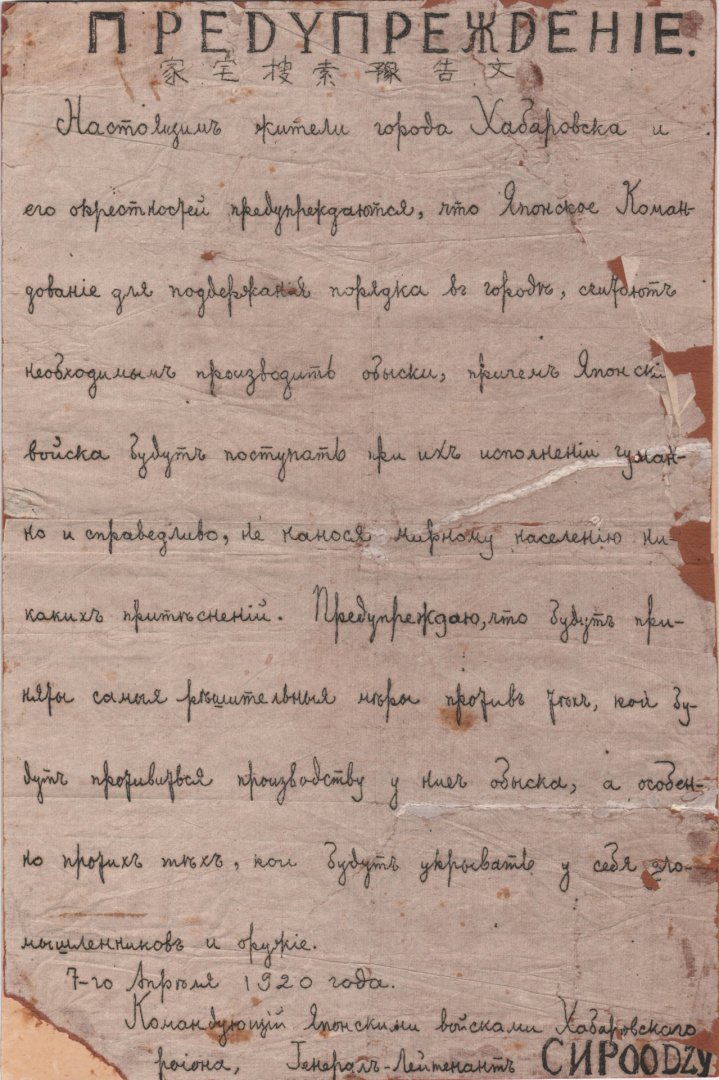 ПРЕДУПРЕЖДЕНІЕ.
家宅搜索豫告文
Настоящимъ жители города Хабаровска и
его окрестностей предупреждаются, что Японское Коман-
дованіе для поддержанія порядка въ городѣ, считаютъ
необходимымъ производить обыски, причемъ Японскія
войска будутъ поступать при ихъ исполненіи гуман-
но и справедливо, не нанося мирному населенію ни-
какихъ притѣсненій. Предупреждаю, что будутъ при-
няты самыя рѣшительныя мѣры противъ тѣхъ, кои бу-
дутъ противиться производству у нихъ обыска, а особен-
но противъ тѣхъ, кои будутъ укрывать у себя зло-
мышленниковъ и оружіе.
7-го Апрѣля 1920 года.
Командующій Японскими войсками Хабаровскаго
раіона, Генералъ-Лейтенантъ СИРООДZУ